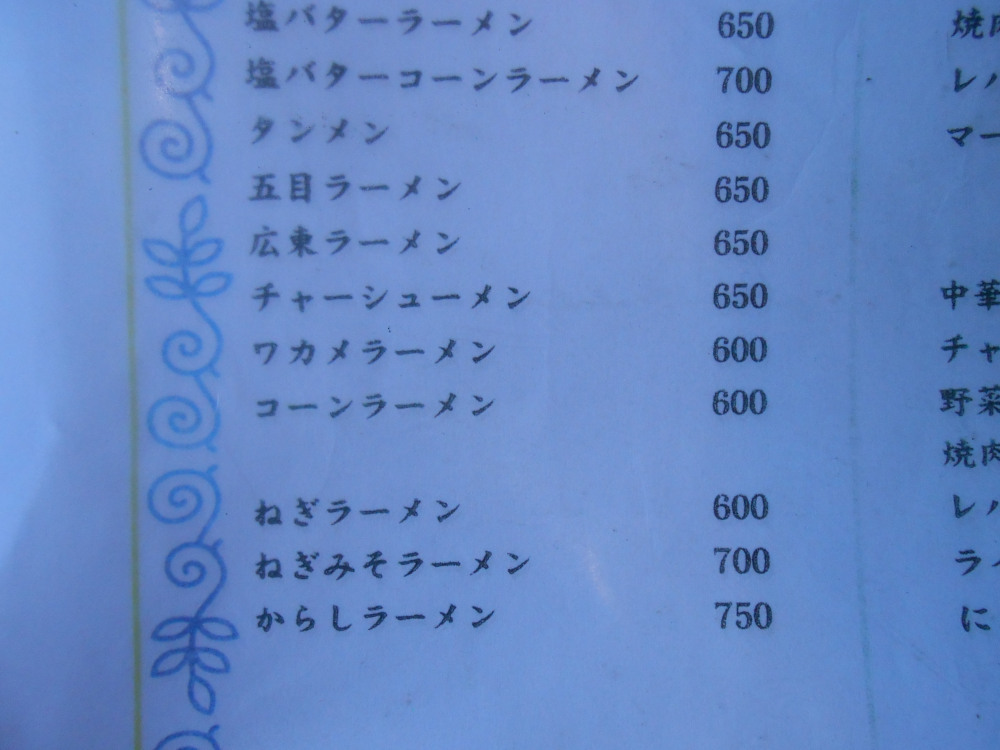 塩バターラーメン 650
塩バターコーンラーメン 700
タンメン 650
五目ラーメン 650
広東ラーメン 650
チャーシューメン 650
ワカメラーメン 600
コーンラーメン 600
ねぎラーメン 600
ねぎみそラーメン 700
からしラーメン 750
焼肉
レバ
マー
中華
チャ
野菜
焼肉
レバ
ライ
に